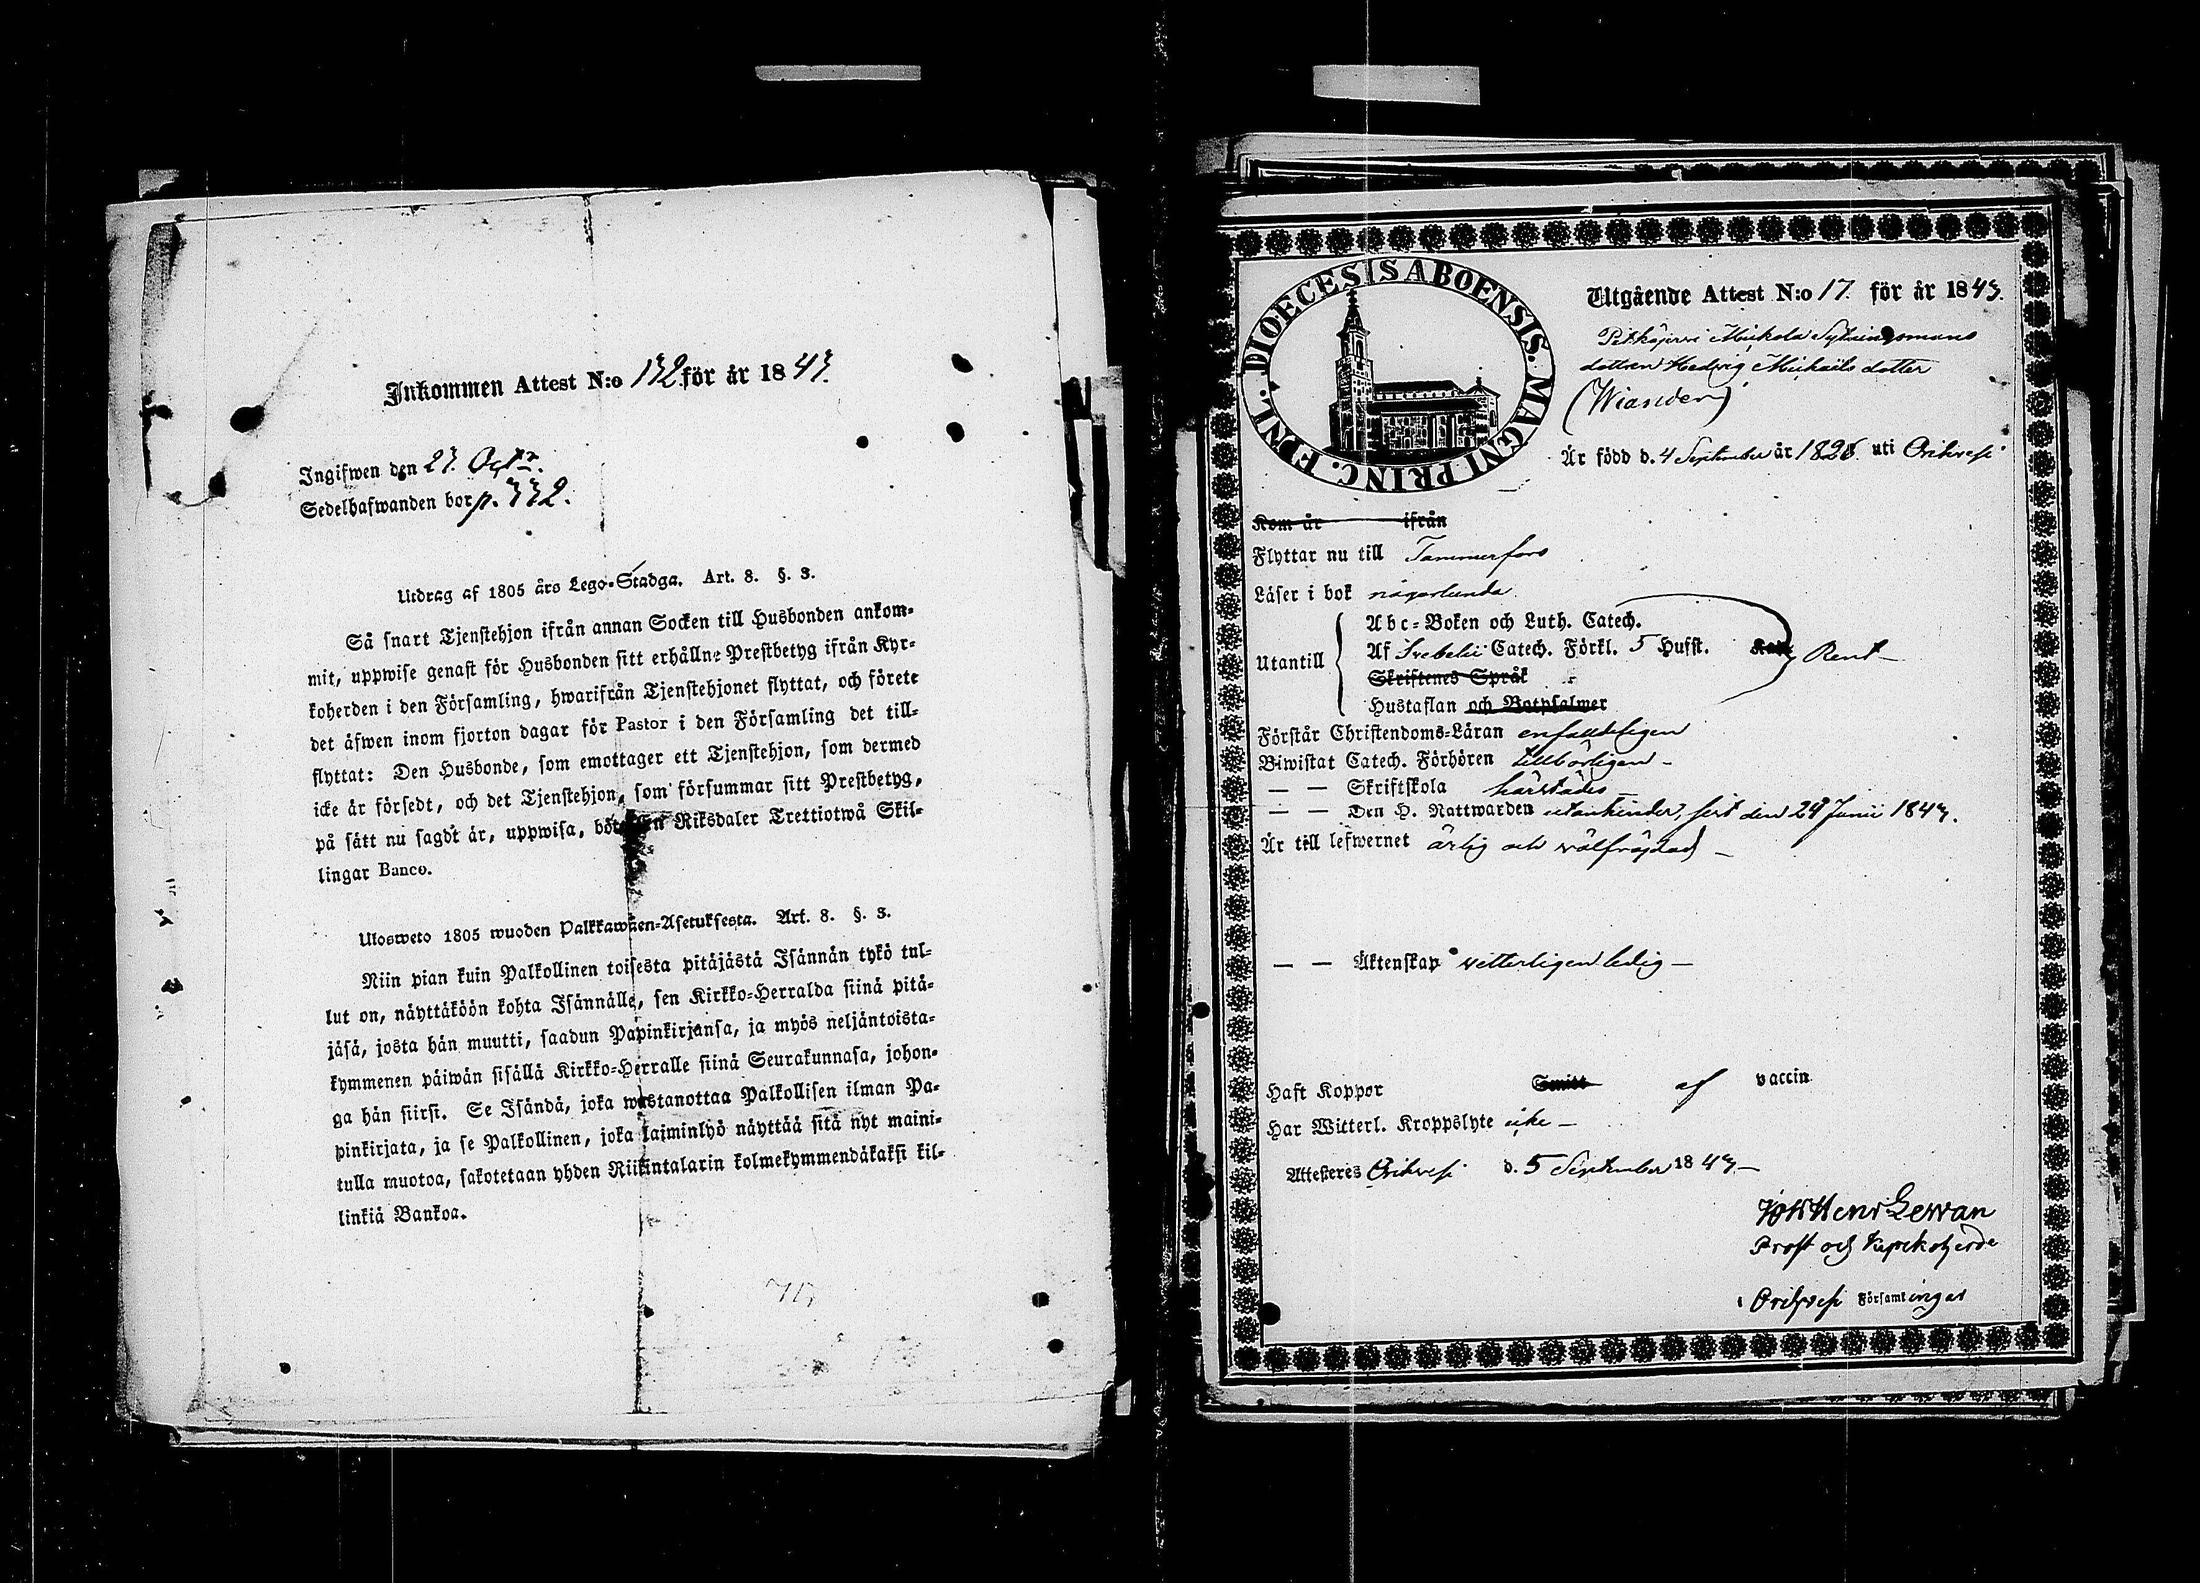 Inkommen Attest N:o 132 för år 1843.
Ingifwen den 27. Oct:r.
Sedelhafwanden bor p. 332.
Utdrag af 1805 års Lego-Stadga. Art. 8. §. 3.
Så snart Tjenstehjon ifrån annan Socken till Husbonden ankom-
mit, uppwise genast för Husbonden sitt erhållne Prestbetyg ifrån Kyr-
koherden i den Församling, hwarifrån Tjenstehjonet flyttat, och förete
det äfwen inom fjorton dagar för Pastor i den Församling det till-
flyttat: Den Husbonde, som emottager ett Tjenstehjon, som dermed
icke är försedt, och det Tjenstehjon, som försummar sitt Prestbetyg,
på sätt nu sagdt är, uppwisa, böte en Riksdaler Trettiotwå Skil-
lingar Banco.
Ulosweto 1805 wuoden Palkkawäen-Asetuksesta. Art. 8. §. 3.
Niin pian kuin Palkollinen toisesta pitäjästä Isännän tykö tul-
lut on, näyttäköön kohta Isännälle, sen Kirkko-Herralda siinä pitä-
jäsä, josta hän muutti, saadun Papinkirjansa, ja myös neljäntoista-
kymmenen päiwän sisällä Kirkko-Herralle siinä Seurakunnasa, johon-
ga hän siirsi. Se Isändä, joka wastanottaa Palkollisen ilman Pa-
pinkirjata, ja se Palkollinen, joka laiminlyö näyttää sitä nyt maini-
tulla muotoa, sakotetaan yhden Riikintalarin kolmekymmendäkaksi kil-
linkiä Bankoa.
DIOECESIS ABOENSIS. MAGNI PRINC. FINL.
Utgående Attest N:o 17. för år 1843.
Pitkäjärvi Mickola Sytningsmans
dottren Hedvig Michaëls dotter
(Wiander)
Är född d. 4 September år 1826 uti Orihvesi
Kom år ifrån
Flyttar nu till Tammerfors
Läser i bok någorlunda
Utantill
Abc-Boken och Luth. Catech.
Af Svebelii Catech. Förkl. 5 Hufst. Rent
Skriftenes Språk
Hustaflan och Botpsalmer
Förstår Christendoms-Läran enfaldeligen
Biwistat Catech. Förhören tillbörligen
— — Skriftskola härstädes
— — Den H. Nattwarden utan hinder, sist den 29 Junii 1843.
Är till lefwernet ärlig och wälfrejdad —
— — Äktenskap vetterligen ledig —
Haft Koppor Smitt af vaccin
Har Witterl. Kroppslyte icke —
Attesteres Orihvesi d. 5 September 1843 —
Joh Henr Lewan
Prost och Kyrckoherde
i Orihvesi Församlingar